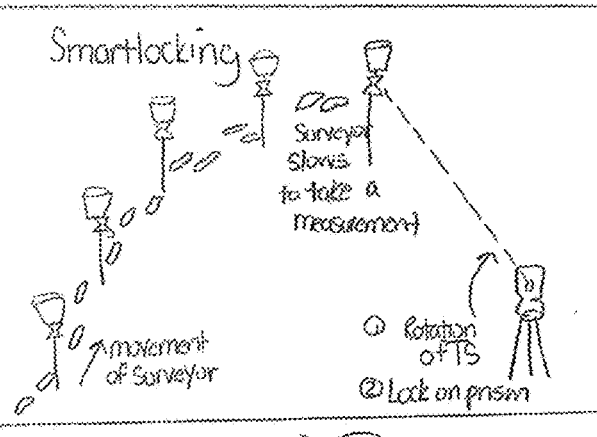 Smartlocking
Surveyor
slows
to take a
measurement
movement
of Surveyor
① Rotation
of TS
② Lock on prism